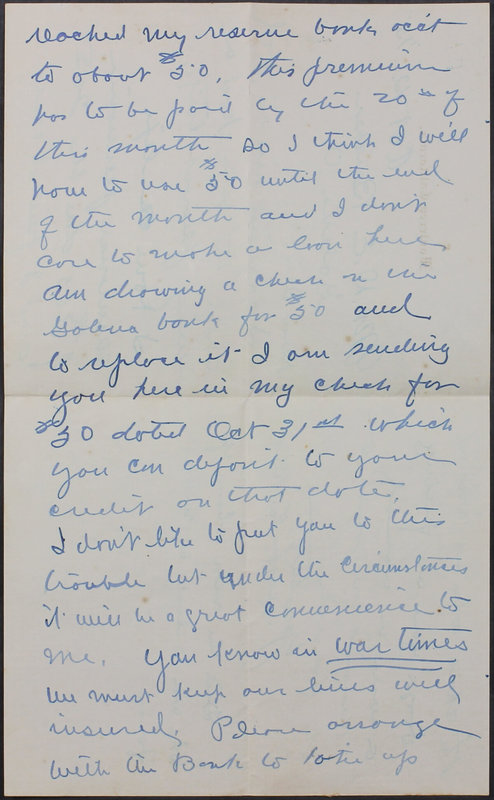 reached my reserve bank acct
to about $50. This premium
has to be paid by the 20th of
this month so I think I will
have to use $50 until the end
of the month and I don't
care to make a loan here
Am drawing a check on the
Galena bank for $50 and
to replace it I am sending
you here in my check for
$50 dated Oct 31st which
you can deposit to your
credit on that date.
I don't like to put you to this
trouble but under the circumstances
it will be a great convenience to
me. You know in war times
we must keep our lives well
insured. Please arrange
with the Bank to take up